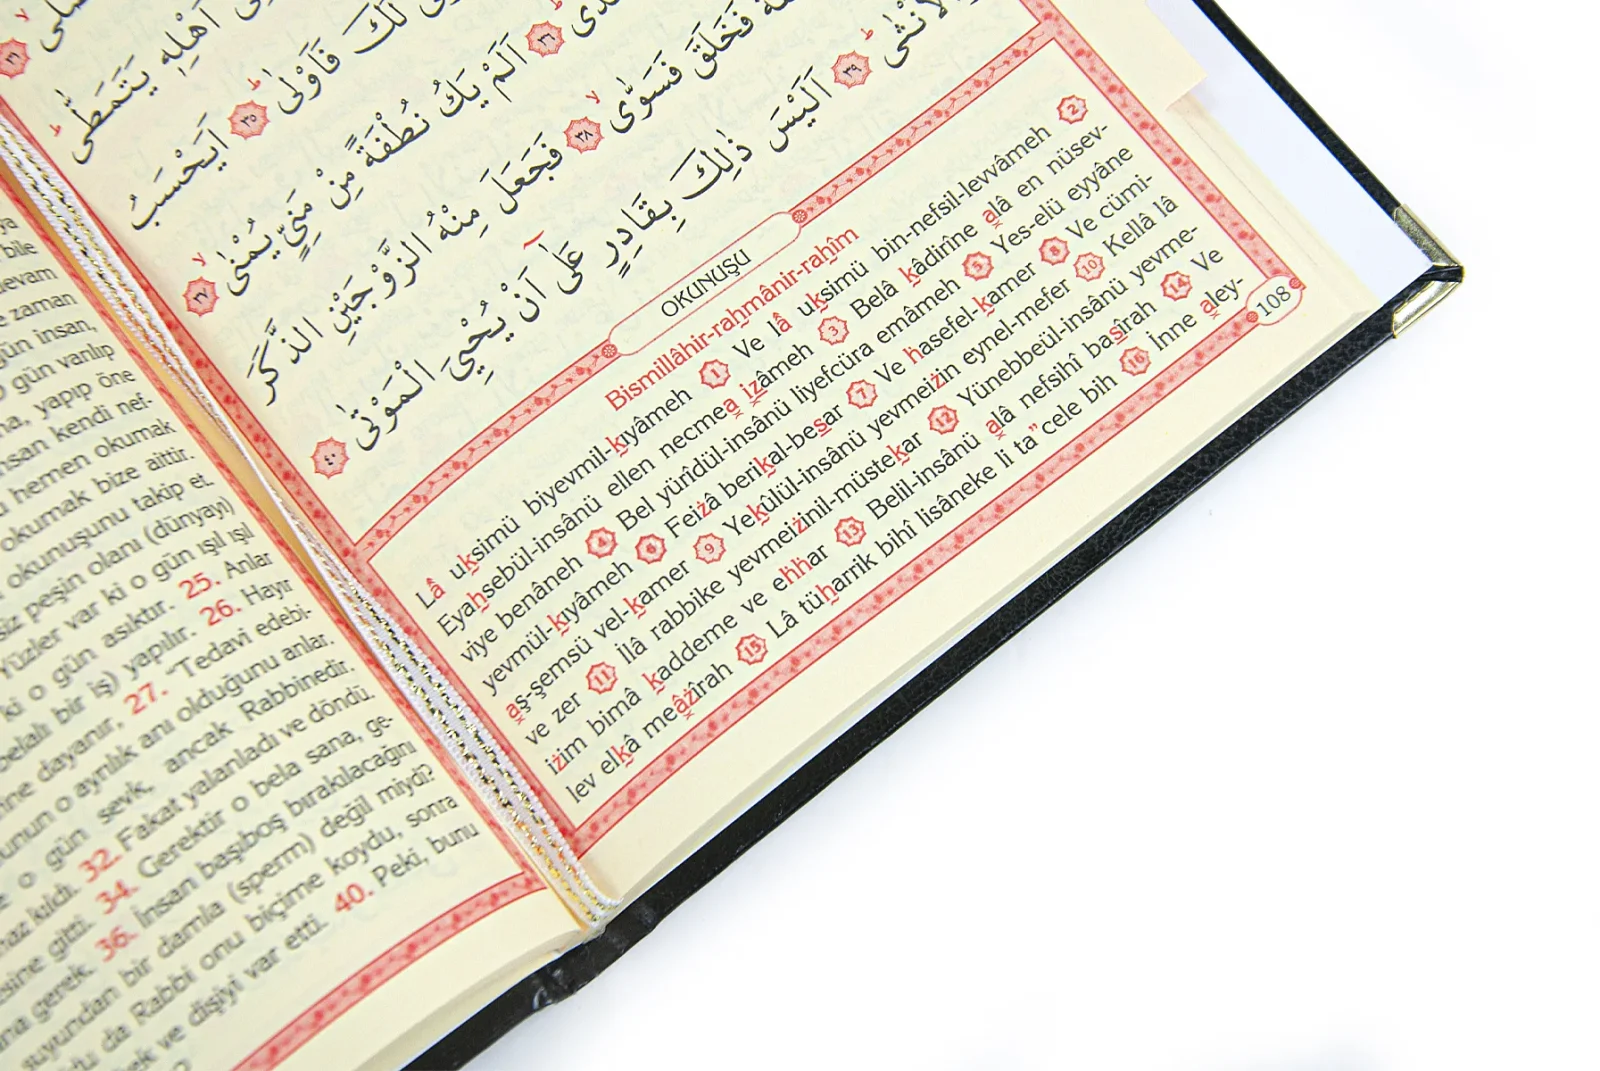 ya
bile
devam
zaman
gün insan,
gün varılıp
yapıp öne
insan kendi nef-
hemen okumak
okumak bize aittir.
okunuşunu takip et.
siz peşin olanı (dünyayı)
Yüzler var ki o gün ışıl ışıl
ki o gün asıktır. 25. Anlar
belalı bir iş) yapılır. 26. Hayır
dayanır, 27. "Tedavi edebi-
o ayrılık anı olduğunu anlar.
o gün sevk, ancak Rabbinedir.
kıldı. 32. Fakat yalanladı ve döndü.
gitti. 34. Gerektir o bela sana, ge-
gerek. 36. İnsan başıboş bırakılacağını
suyundan bir damla (sperm) değil miydi?
da Rabbi onu biçime koydu, sonra
ve dişiyi var etti. 40. Peki, bunu
اَهْلِهٖ يَتَمَطّٰىۜ
لَكَ فَاَوْلٰىۜ ﴿٣٥﴾ اَيَحْسَبُ
﴿٣٦﴾ اَلَمْ يَكُ نُطْفَةً مِنْ مَنِيٍّ يُمْنٰىۙ ﴿٣٧﴾
فَخَلَقَ فَسَوّٰىۙ ﴿٣٨﴾ فَجَعَلَ مِنْهُ الزَّوْجَيْنِ الذَّكَرَ
وَالْاُنْثٰىۜ ﴿٣٩﴾ اَلَيْسَ ذٰلِكَ بِقَادِرٍ عَلٰٓى اَنْ يُحْيِيَ الْمَوْتٰى ﴿٤٠﴾
OKUNUŞU
Bismillâhir-rahmânir-rahîm
Lâ uksimü biyevmil-kıyâmeh 1 Ve lâ uksimü bin-nefsil-levvâmeh 2
Eyahsebül-insânü ellen necmea izâmeh 3 Belâ kâdirîne alâ en nüsev-
viye benâneh 4 Bel yürîdül-insânü liyefcüra emâmeh 5 Yes-elü eyyâne
yevmül-kıyâmeh 6 Feiżâ berikal-besar 7 Ve hasefel-kamer 8 Ve cümi-
aş-şemsü vel-kamer 9 Yekûlül-insânü yevmeiżin eynel-mefer 10 Kellâ lâ
ve zer 11 İlâ rabbike yevmeiżinil-müstekar 12 Yünebbeül-insânü yevme-
iżim bimâ kaddeme ve ehhar 13 Belil-insânü alâ nefsihî basîrah 14 Ve
lev elkâ meâżîrah 15 Lâ tüharrik bihî lisâneke li ta" cele bih 16 İnne aley-
108